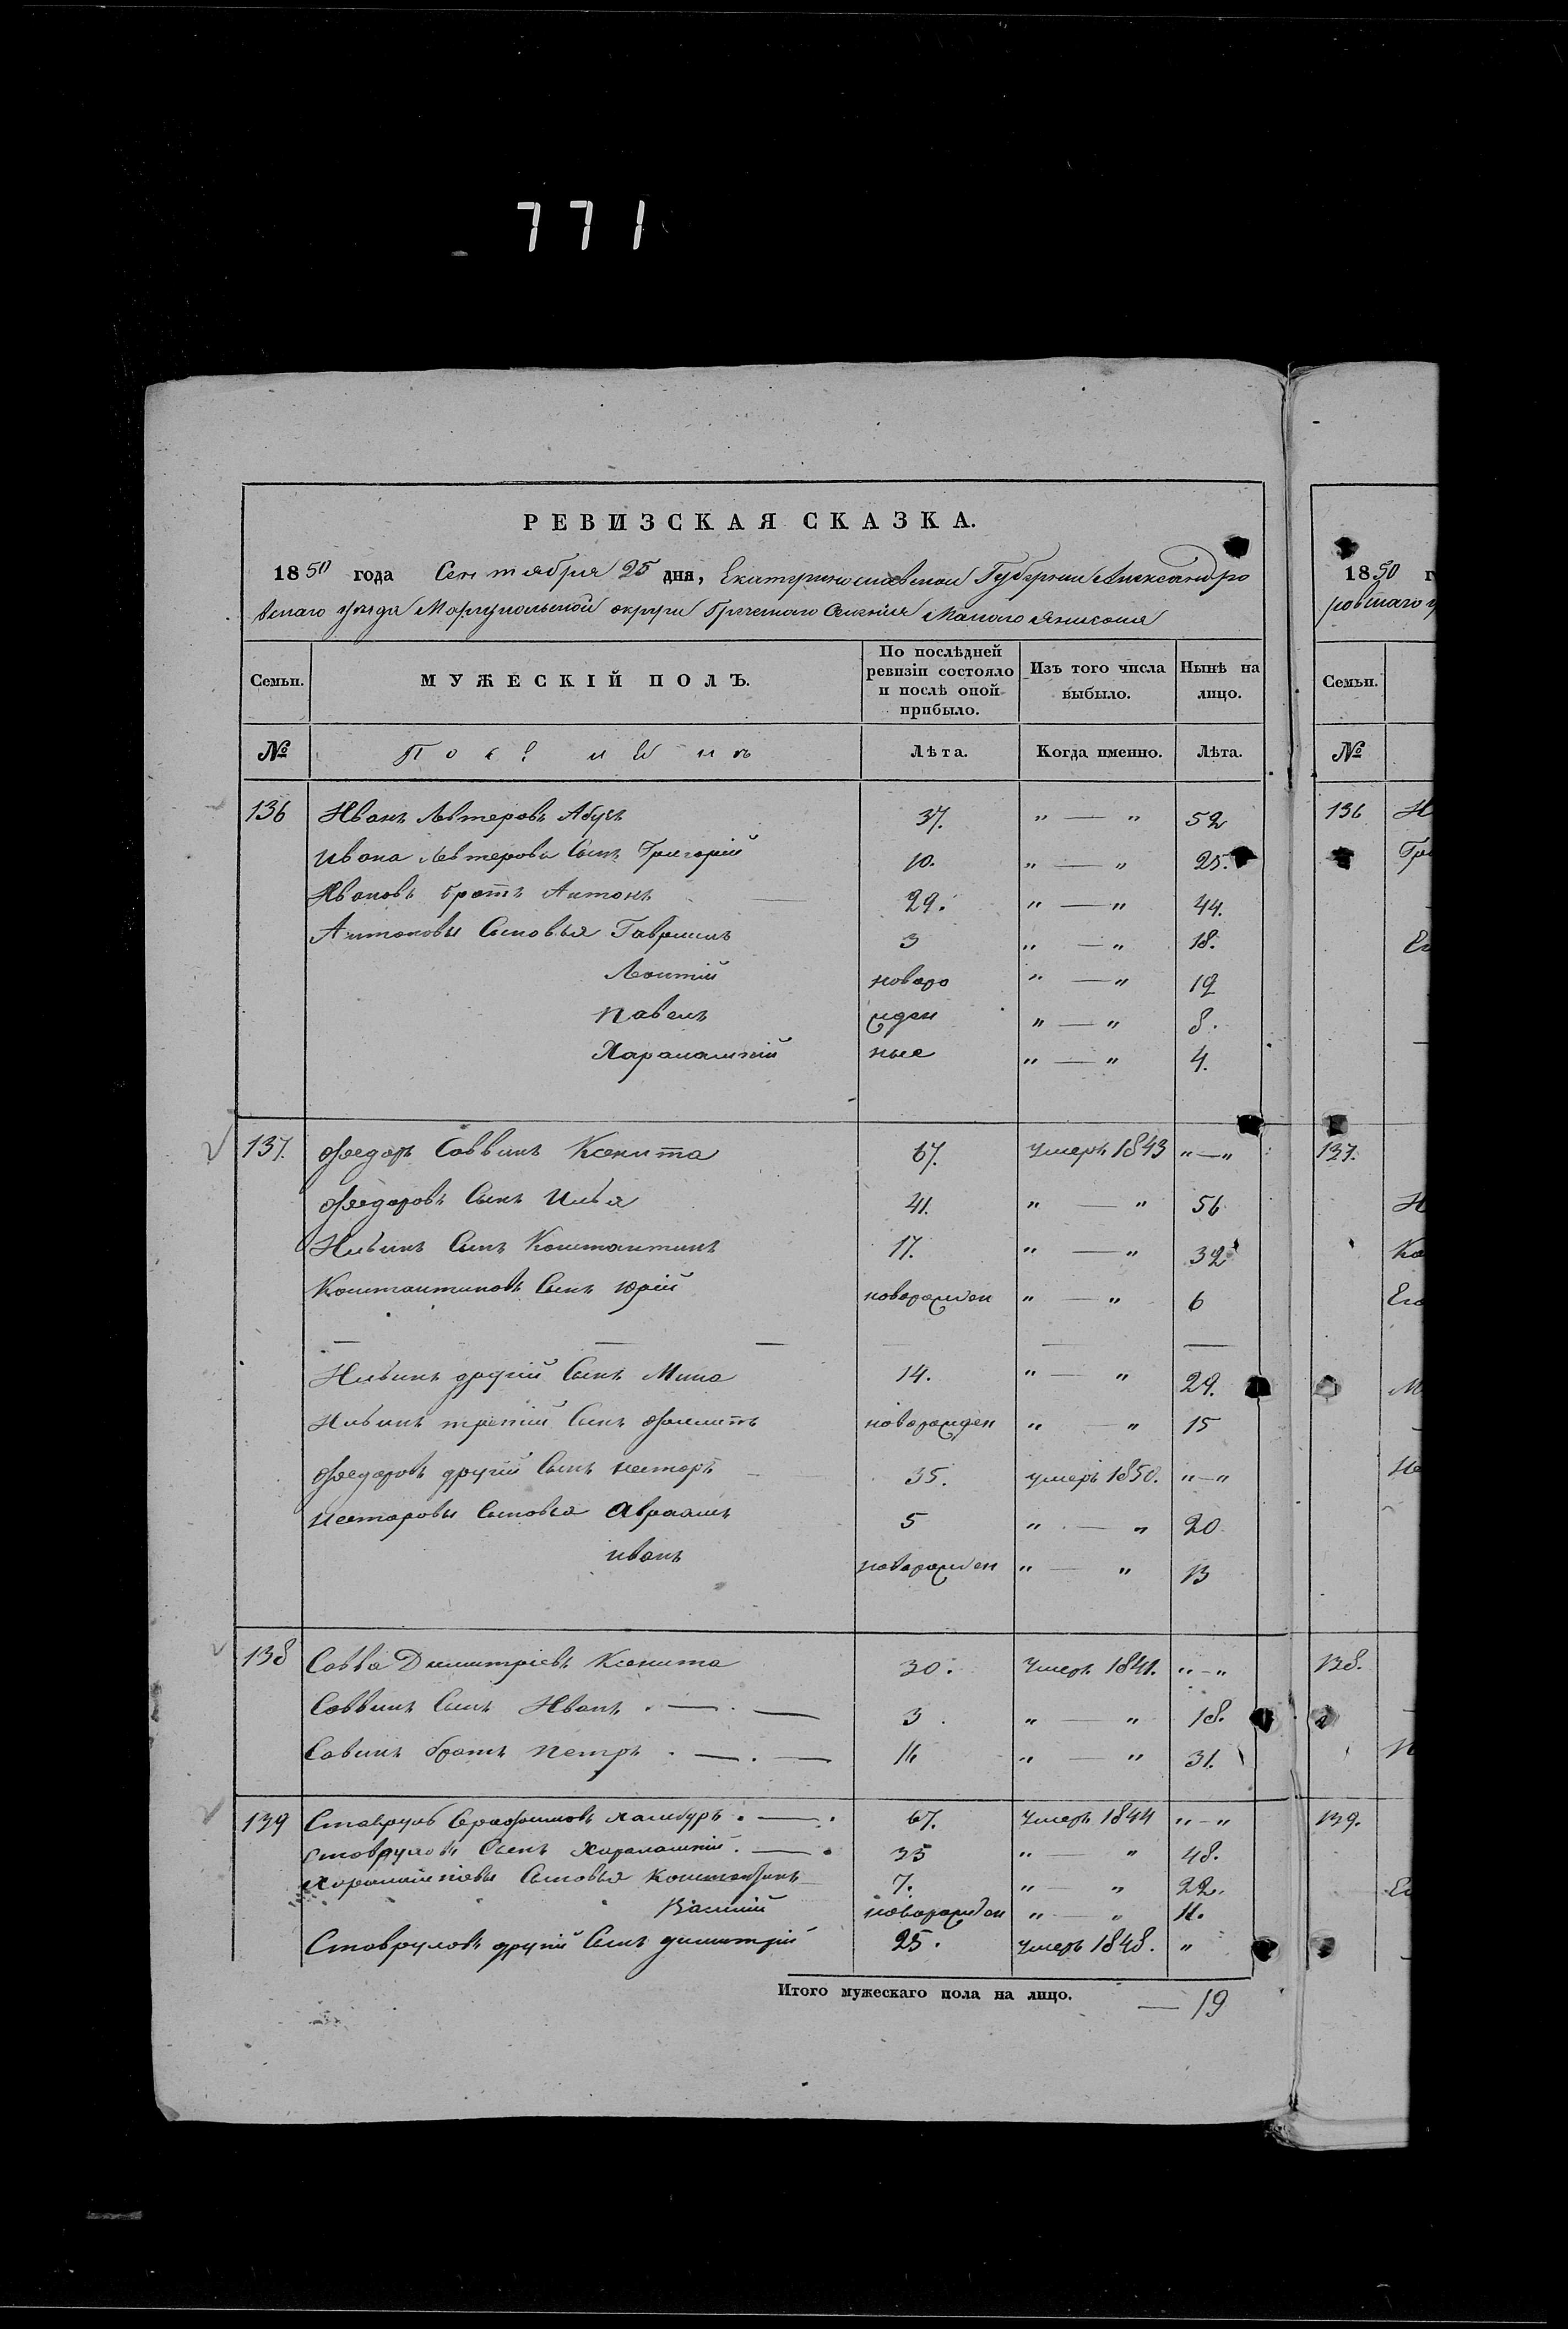 771
РЕВИЗСКАЯ СКАЗКА.
1850 года Сентября 25 дня, Екатеринославской Губернии Александро
вскаго уезда Мариупольской округи Греческаго Селенія Малаго Янисоля
Семьи. МУЖЕСКІЙ ПОЛЪ. По послѣдней ревизіи состояло и послѣ оной прибыло. Изъ того числа выбыло. Нынѣ на лицо.
№ Лѣта. Когда именно. Лѣта.
136 Иванъ Левтеровъ 37. " — " 52
Ивана Левтерова Сынъ Григорій 10. " — " 25.
Ивановъ братъ Антонъ 29. " — " 44.
Антоновы Сыновья Гавриилъ 3 " — " 18.
Леонтій новоро " — " 12
Павелъ жден " — " 8.
Харалампій ные " — " 4.
137. Федоръ Саввинъ Ксенита 67. Умеръ 1843 " — "
Федоровъ Сынъ Илья 41. " — " 56
Ильинъ Сынъ Константинъ 17. " — " 32
Константиновъ Сынъ Юрій новорожден " — " 6
Ильинъ другій Сынъ Мина 14. " — " 29.
Ильинъ третій Сынъ Филипъ новорожден " — " 15
Федоровъ другій Сынъ Несторъ 35. умеръ 1850. " — "
Несторовы Сыновья Авраамъ 5 " — " 20
Иванъ новорожден " — " 13
138 Савва Димитріевъ Ксенита 30. Умеръ 1841. " — "
Саввинъ Сынъ Иванъ 3. " — " 18.
Савинъ братъ Петръ 16 " — " 31.
139 Ставрулъ Серафимовъ 67. Умеръ 1844 " — "
Ставруловъ Сынъ Харалампій 33 " — " 48.
Харалампіевы Сыновья Константинъ 7. " — " 22.
Василій новорожден " — " 11.
Ставруловъ другій Сынъ Димитрій 25. умеръ 1848. "
Итого мужескаго пола на лицо. — 19
1850 г
ровскаго у
Семьи.
№
136
137.
138.
139.